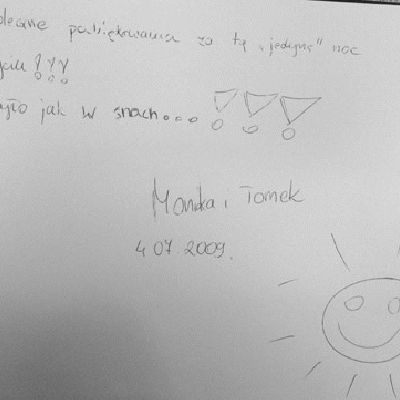 podziękowania za tą „jedyną” noc
!!!
było jak w snach... !!!
Monika i Tomek
4.07.2009.